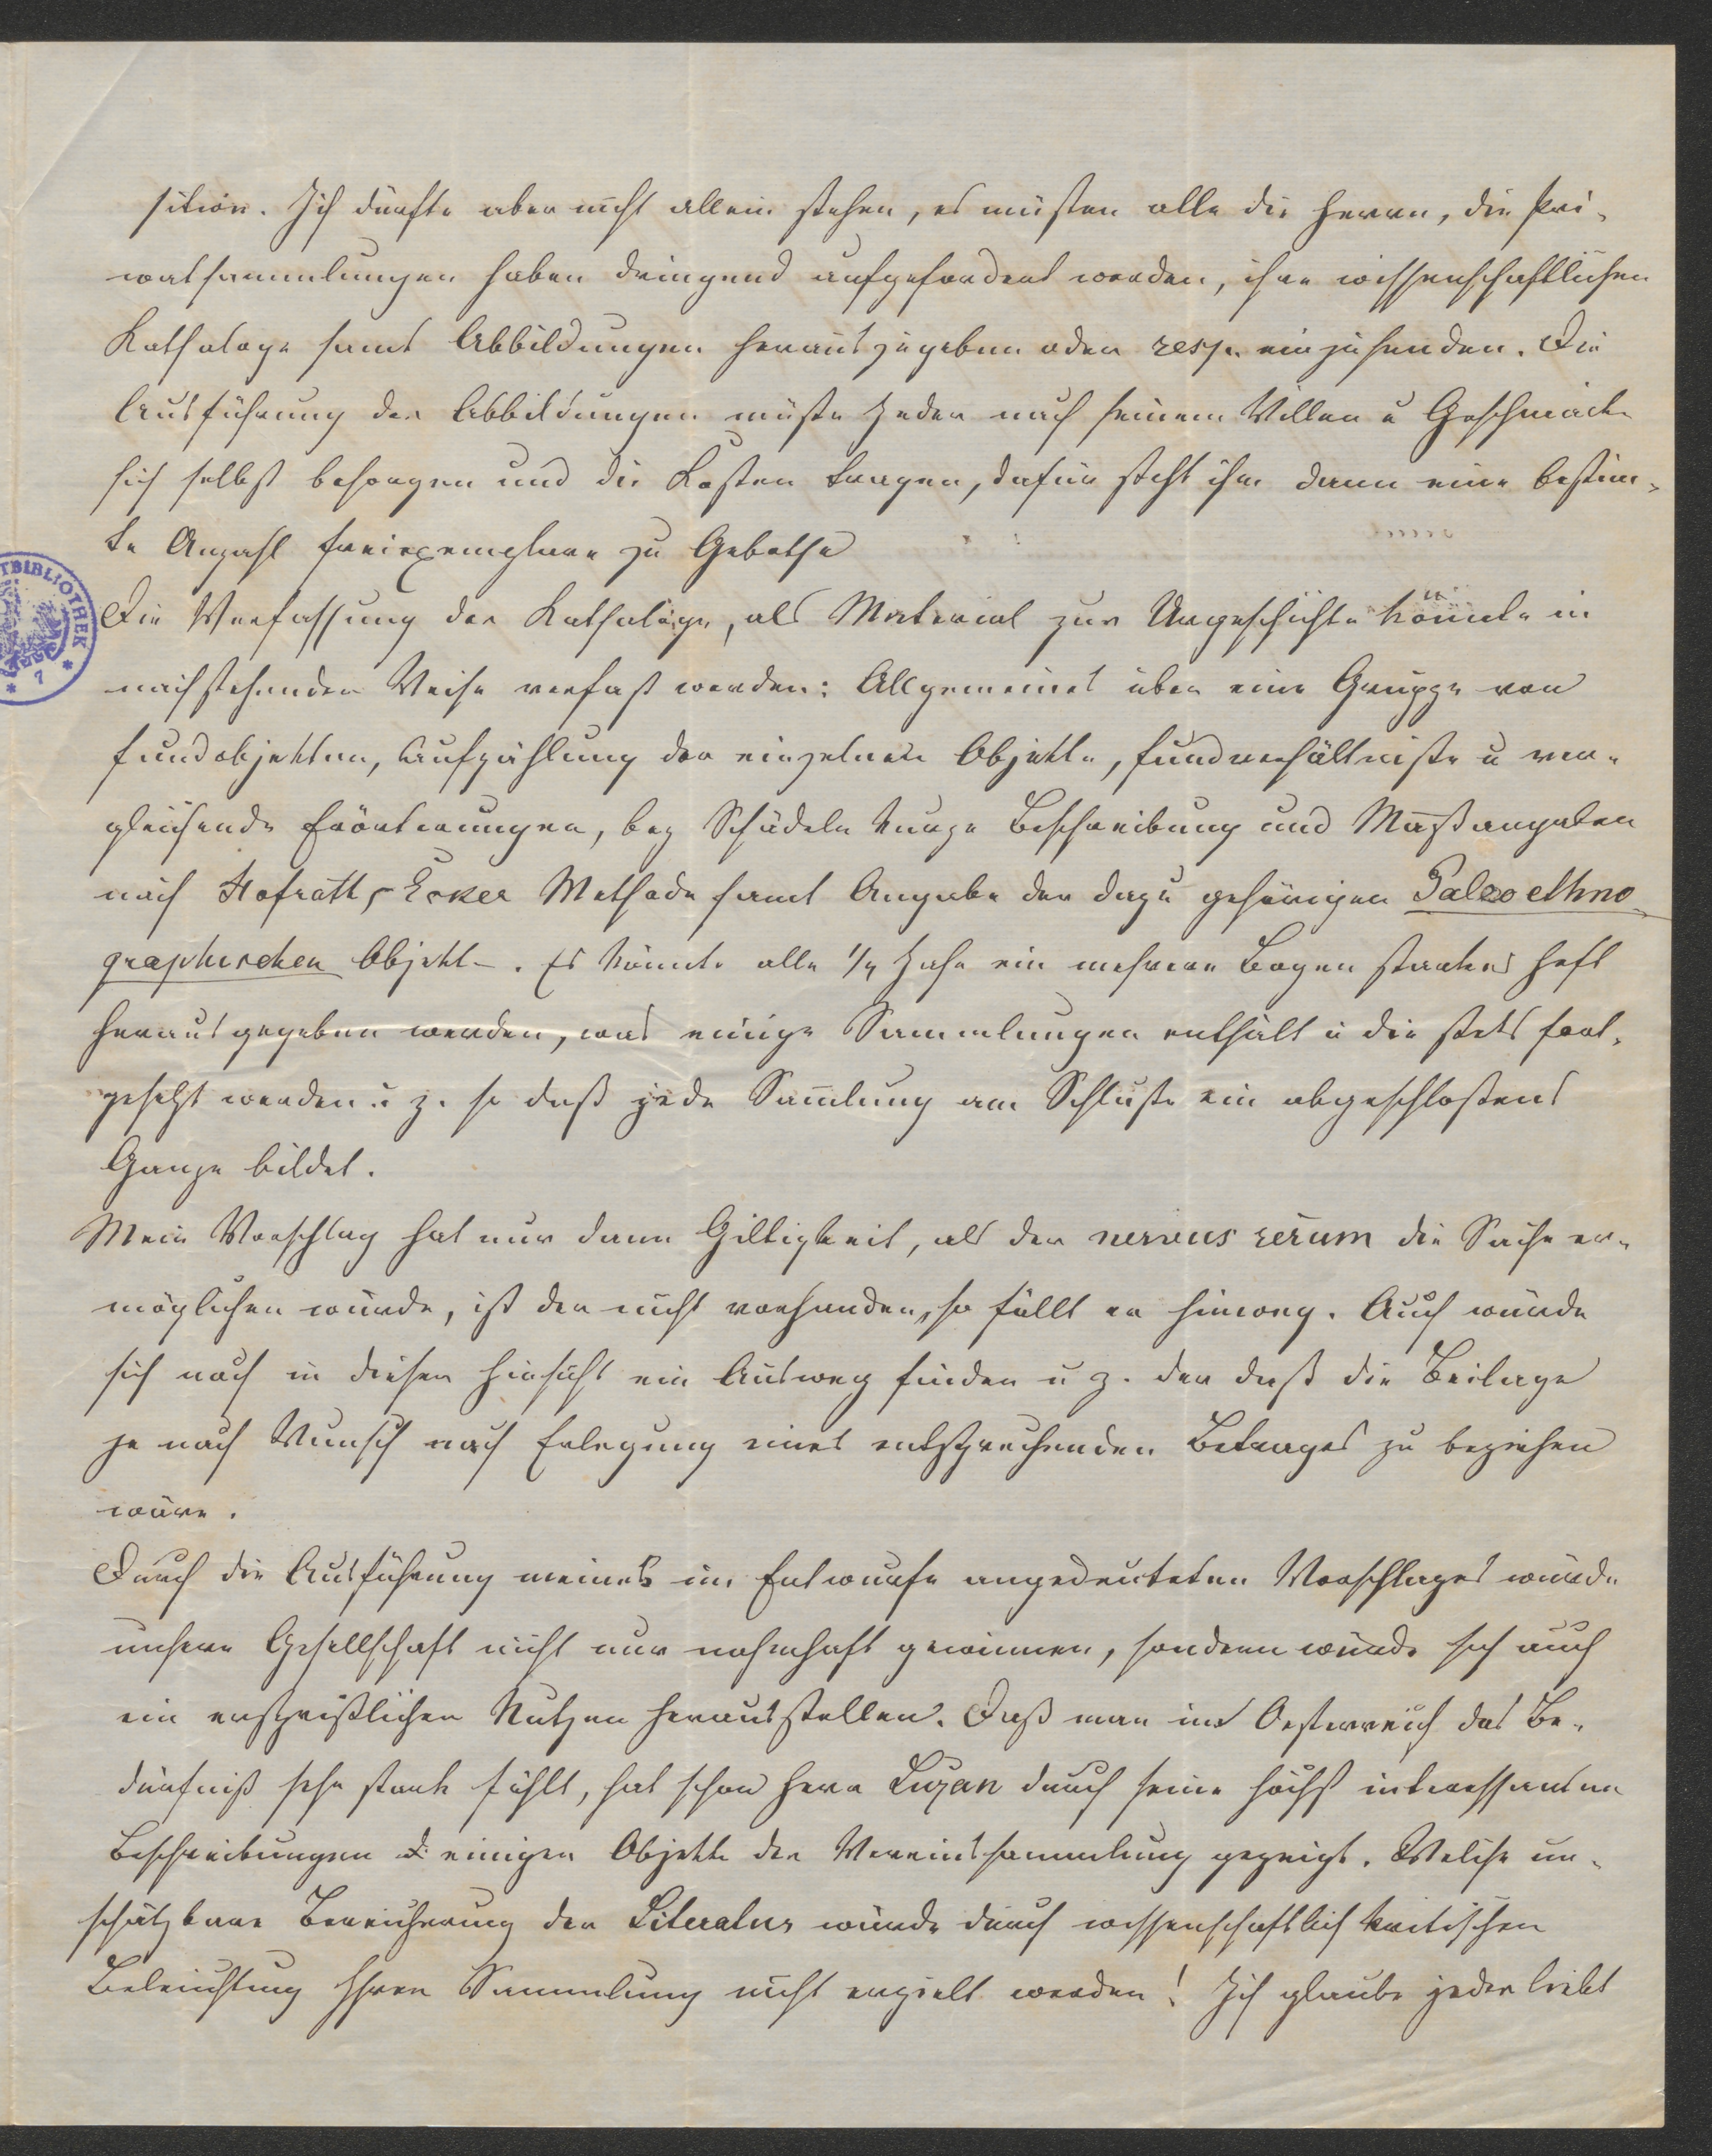 sition. Ich dürfte aber nicht allein stehen, es müsten alle die Herrn, die Pri-
vatsammlungen haben dringend aufgefordert werden, ihre wissenschaftlichen
Kathaloge samt Abbildungen herauszugeben oder resp. einzusenden. Die
Ausführung der Abbildungen müste Jeder nach seinem Willen u Geschmacke
sich selbst besorgen und die Kosten tragen, dafür steht ihm dann eine bestim-
te Anzahl Freiexemplare zu Gebothe
Die Verfassung der Kathaloge, als Material zur Urgeschichte könnte in
nachstehender Weise verfast werden: Allgemeines über eine Gruppe von
Fundobjekten, Aufzählung der einzelnen Objekte, Fundverhältniste u ver-
gleichende Erörterungen, bey Schädeln kurze Beschreibung und Maßangaben
nach Hofraths Ecker Methode samt Angabe der dazu gehörigen Palæoethno-
graphischen Objekte. Es könnte alle 1/4 Jahr ein mehrere Bogen starkes Heft
herausgegeben werden, was einige Sammlungen enthält u die stets fort-
gesetzt werden u z. so daß jede Sammlung am Schluste ein abgeschlostenes
Ganze bildet.
Mein Vorschlag hat nur dann Giltigkeit, als der nervus rerum die Sache er-
möglichen würde, ist der nicht vorhanden, so fällt er hinweg. Auch würde
sich noch in dieser Hinsicht ein Ausweg finden u z. der daß die Beilage
je nach Wunsch nach Erlegung eines entsprechenden Betrages zu beziehen
wäre.
Durch die Ausführung meines im Entwurfe angedeuteten Vorschlages würde
unsere Gesellschaft nicht nur nahmhaft gewinnen, sondern würde sich auch
ein ersprießlicher Nutzen herausstellen. Daß man in Oesterreich das Be-
dürfniß sehr stark fühlt, hat schon Herr Luzan durch seine höchst interessanten
Beschreibungen einiger Objekte der Vereinssammlung gezeigt. Welche un-
schätzbare Bereicherung der Literatur würde durch wissenschaftlich kritischen
Beleuchtung Ihrer Sammlung nicht erzielt werden! Ich glaube jeder liebt
TBIBLIOTHEK
* 7 *